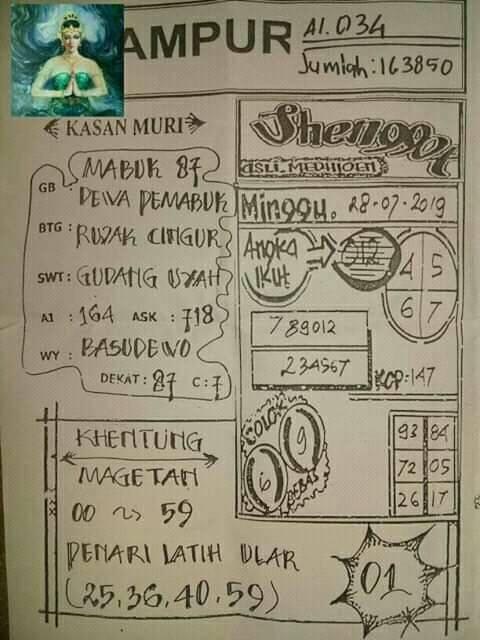 AMPUR
AI. 034
Jumlah: 163850
KASAN MURI
GB : MABUK 87
DEWA PEMABUK
BTG : RUJAK CINGUR
SWT : GUDANG UYAH
AI : 164 ASK : 718
WY : BASUDEWO
DEKAT : 87 C : 7
Shenggot
ASLI MEDIUOEN
Minggu. 28-07-2019
ANGKA
IKUT
012
4 5
6 7
789012
234567
KOP: 147
COLOK
6 9
BEBAS
93 84
72 05
26 17
KHENTUNG
MAGETAN
00 ~ 59
PENARI LATIH ULAR
(25.36.40.59)
01